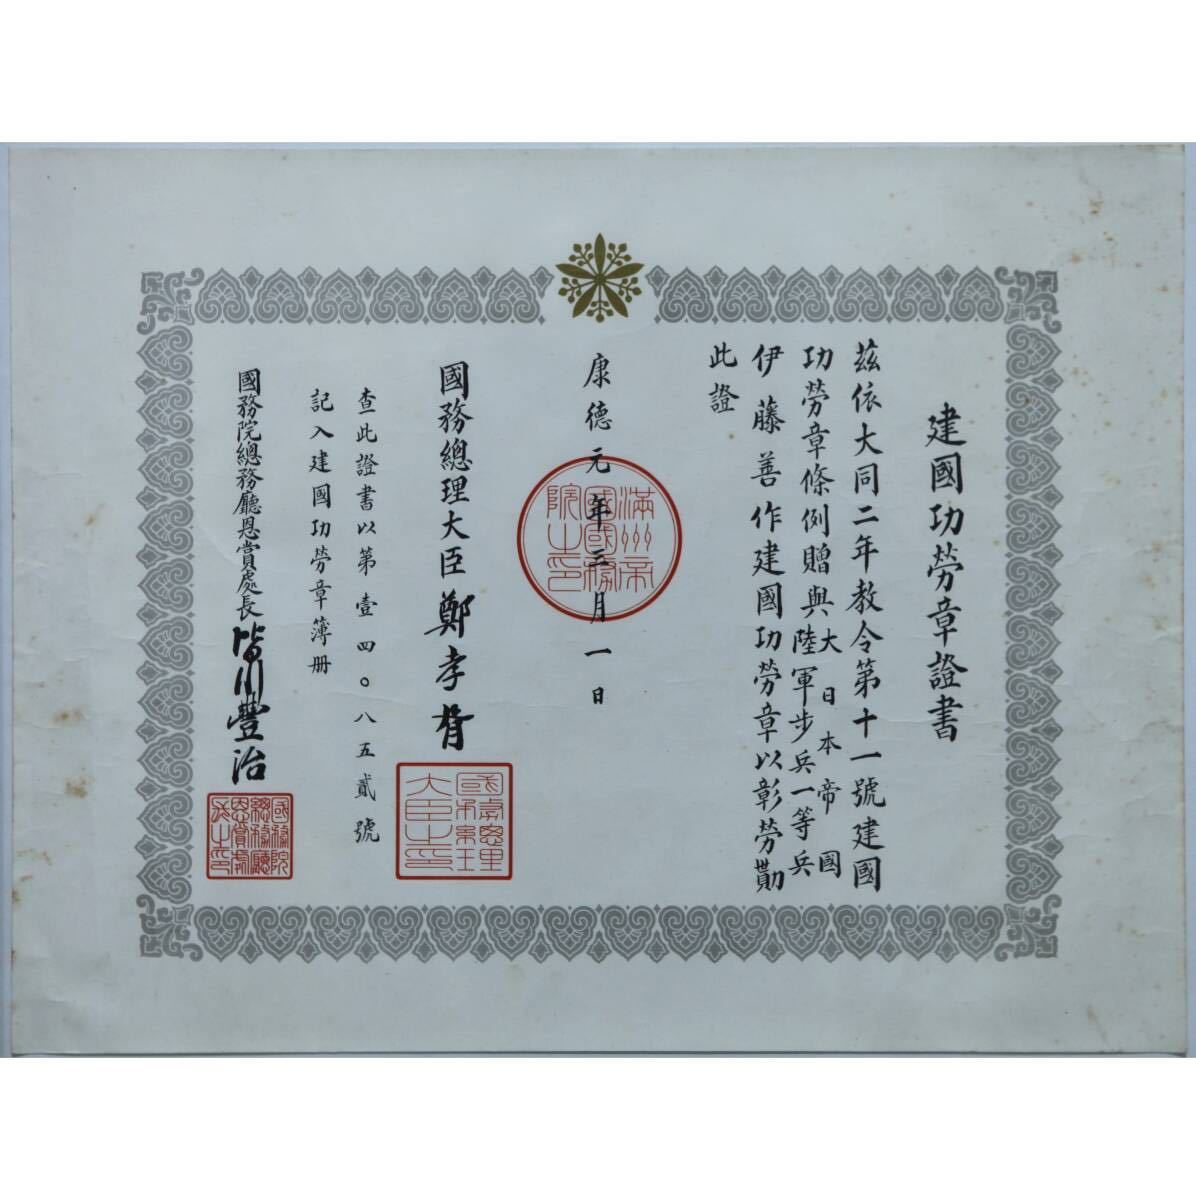 建國功勞章證書
茲依大同二年教令第十一號建國
功勞章條例贈與大日本帝國
陸軍步兵一等兵
伊藤善作建國功勞章以彰勞勩
此證
康德元年三月一日
滿州帝
國國務
院之印
國務總理大臣鄭孝胥
國務總理
大臣之印
查此證書以第壹四〇八五貳號
記入建國功勞章簿册
國務院總務廳恩賞處長皆川豐治
國務院
總務廳
恩賞處
長之印